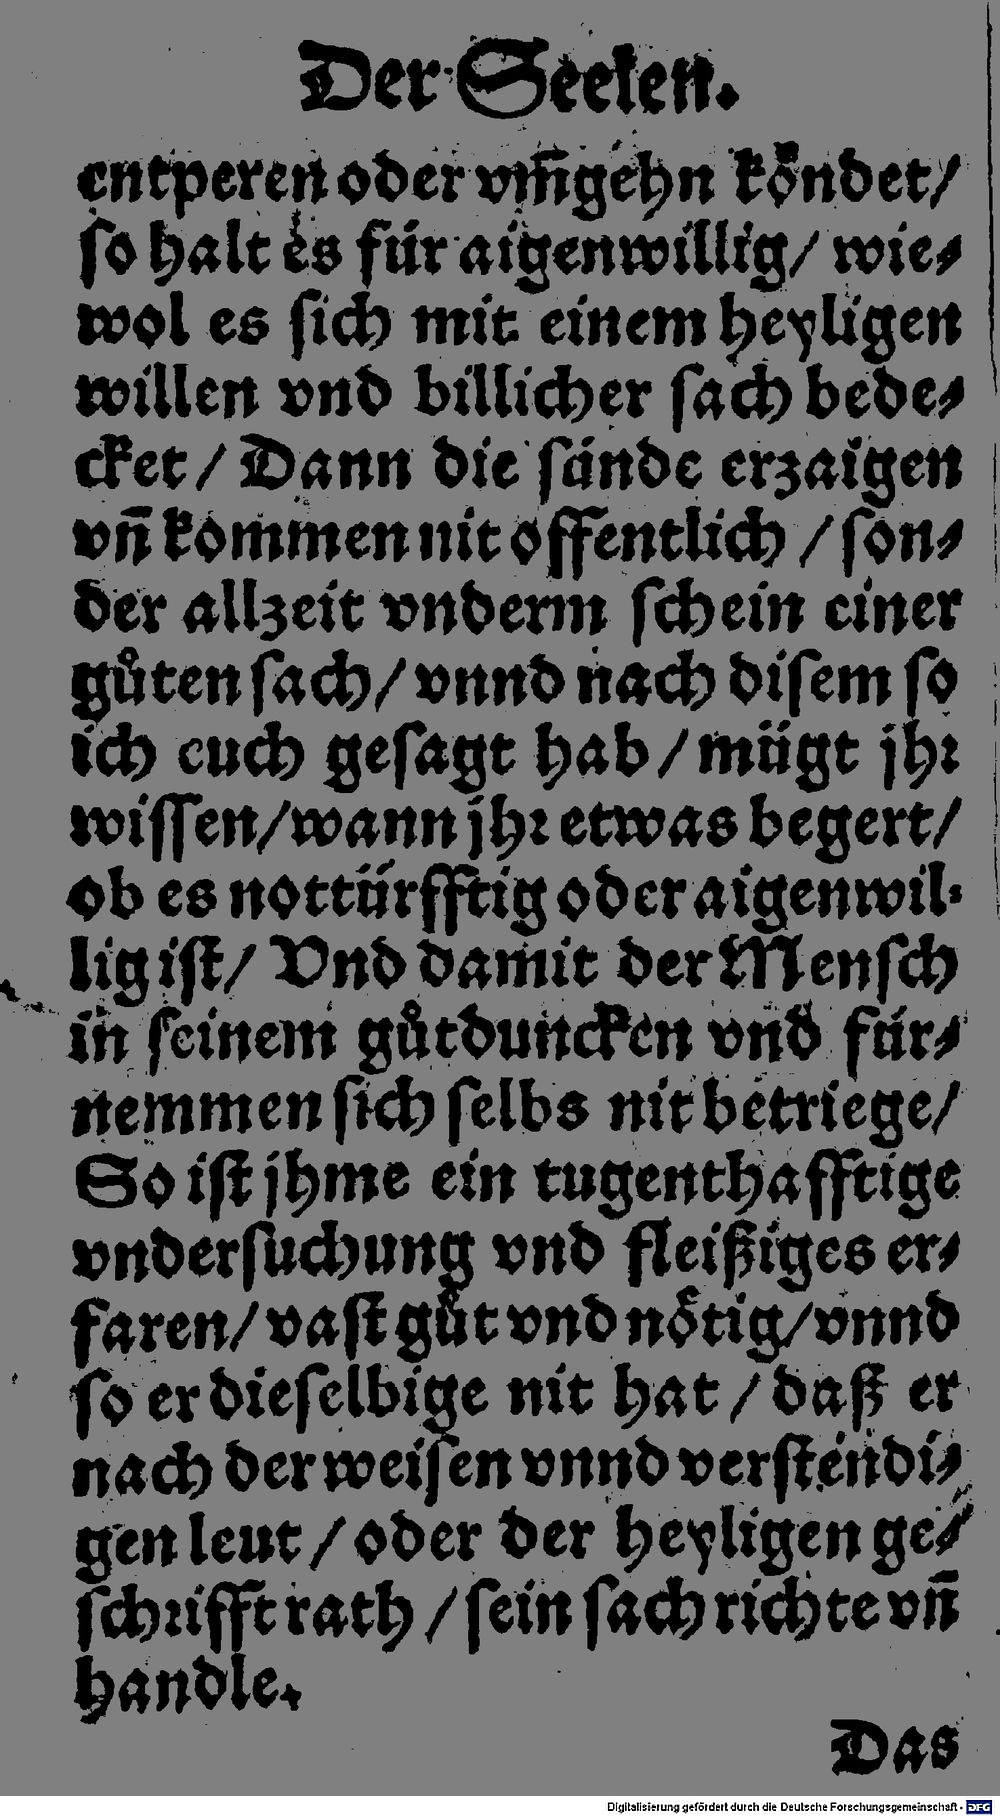 Der Seelen.
entperen oder vm̃gehn koͤndet/
so halt es für aigenwillig/ wie⸗
wol es sich mit einem heyligen
willen vnd billicher sach bede⸗
cket / Dann die sünde erzaigen
vñ kommen nit offentlich / son⸗
der allzeit vnderm schein einer
guͦten sach/ vnnd nach disem so
ich euch gesagt hab / mügt jhr
wissen/ wann jhr etwas begert/
ob es nottürfftig oder aigenwil⸗
lig ist/ Vnd damit der Mensch
in seinem guͦtduncken vnd für⸗
nemmen sich selbs nit betriege/
So ist jhme ein tugenthafftige
vndersuchung vnd fleißiges er⸗
faren/ vast guͦt vnd noͤtig/ vnnd
so er dieselbige nit hat / daß er
nach der weisen vnnd verstendi⸗
gen leut / oder der heyligen ge⸗
schrifft rath / sein sach richte vñ
handle.
Das
Digitalisierung gefördert durch die Deutsche Forschungsgemeinschaft - DFG